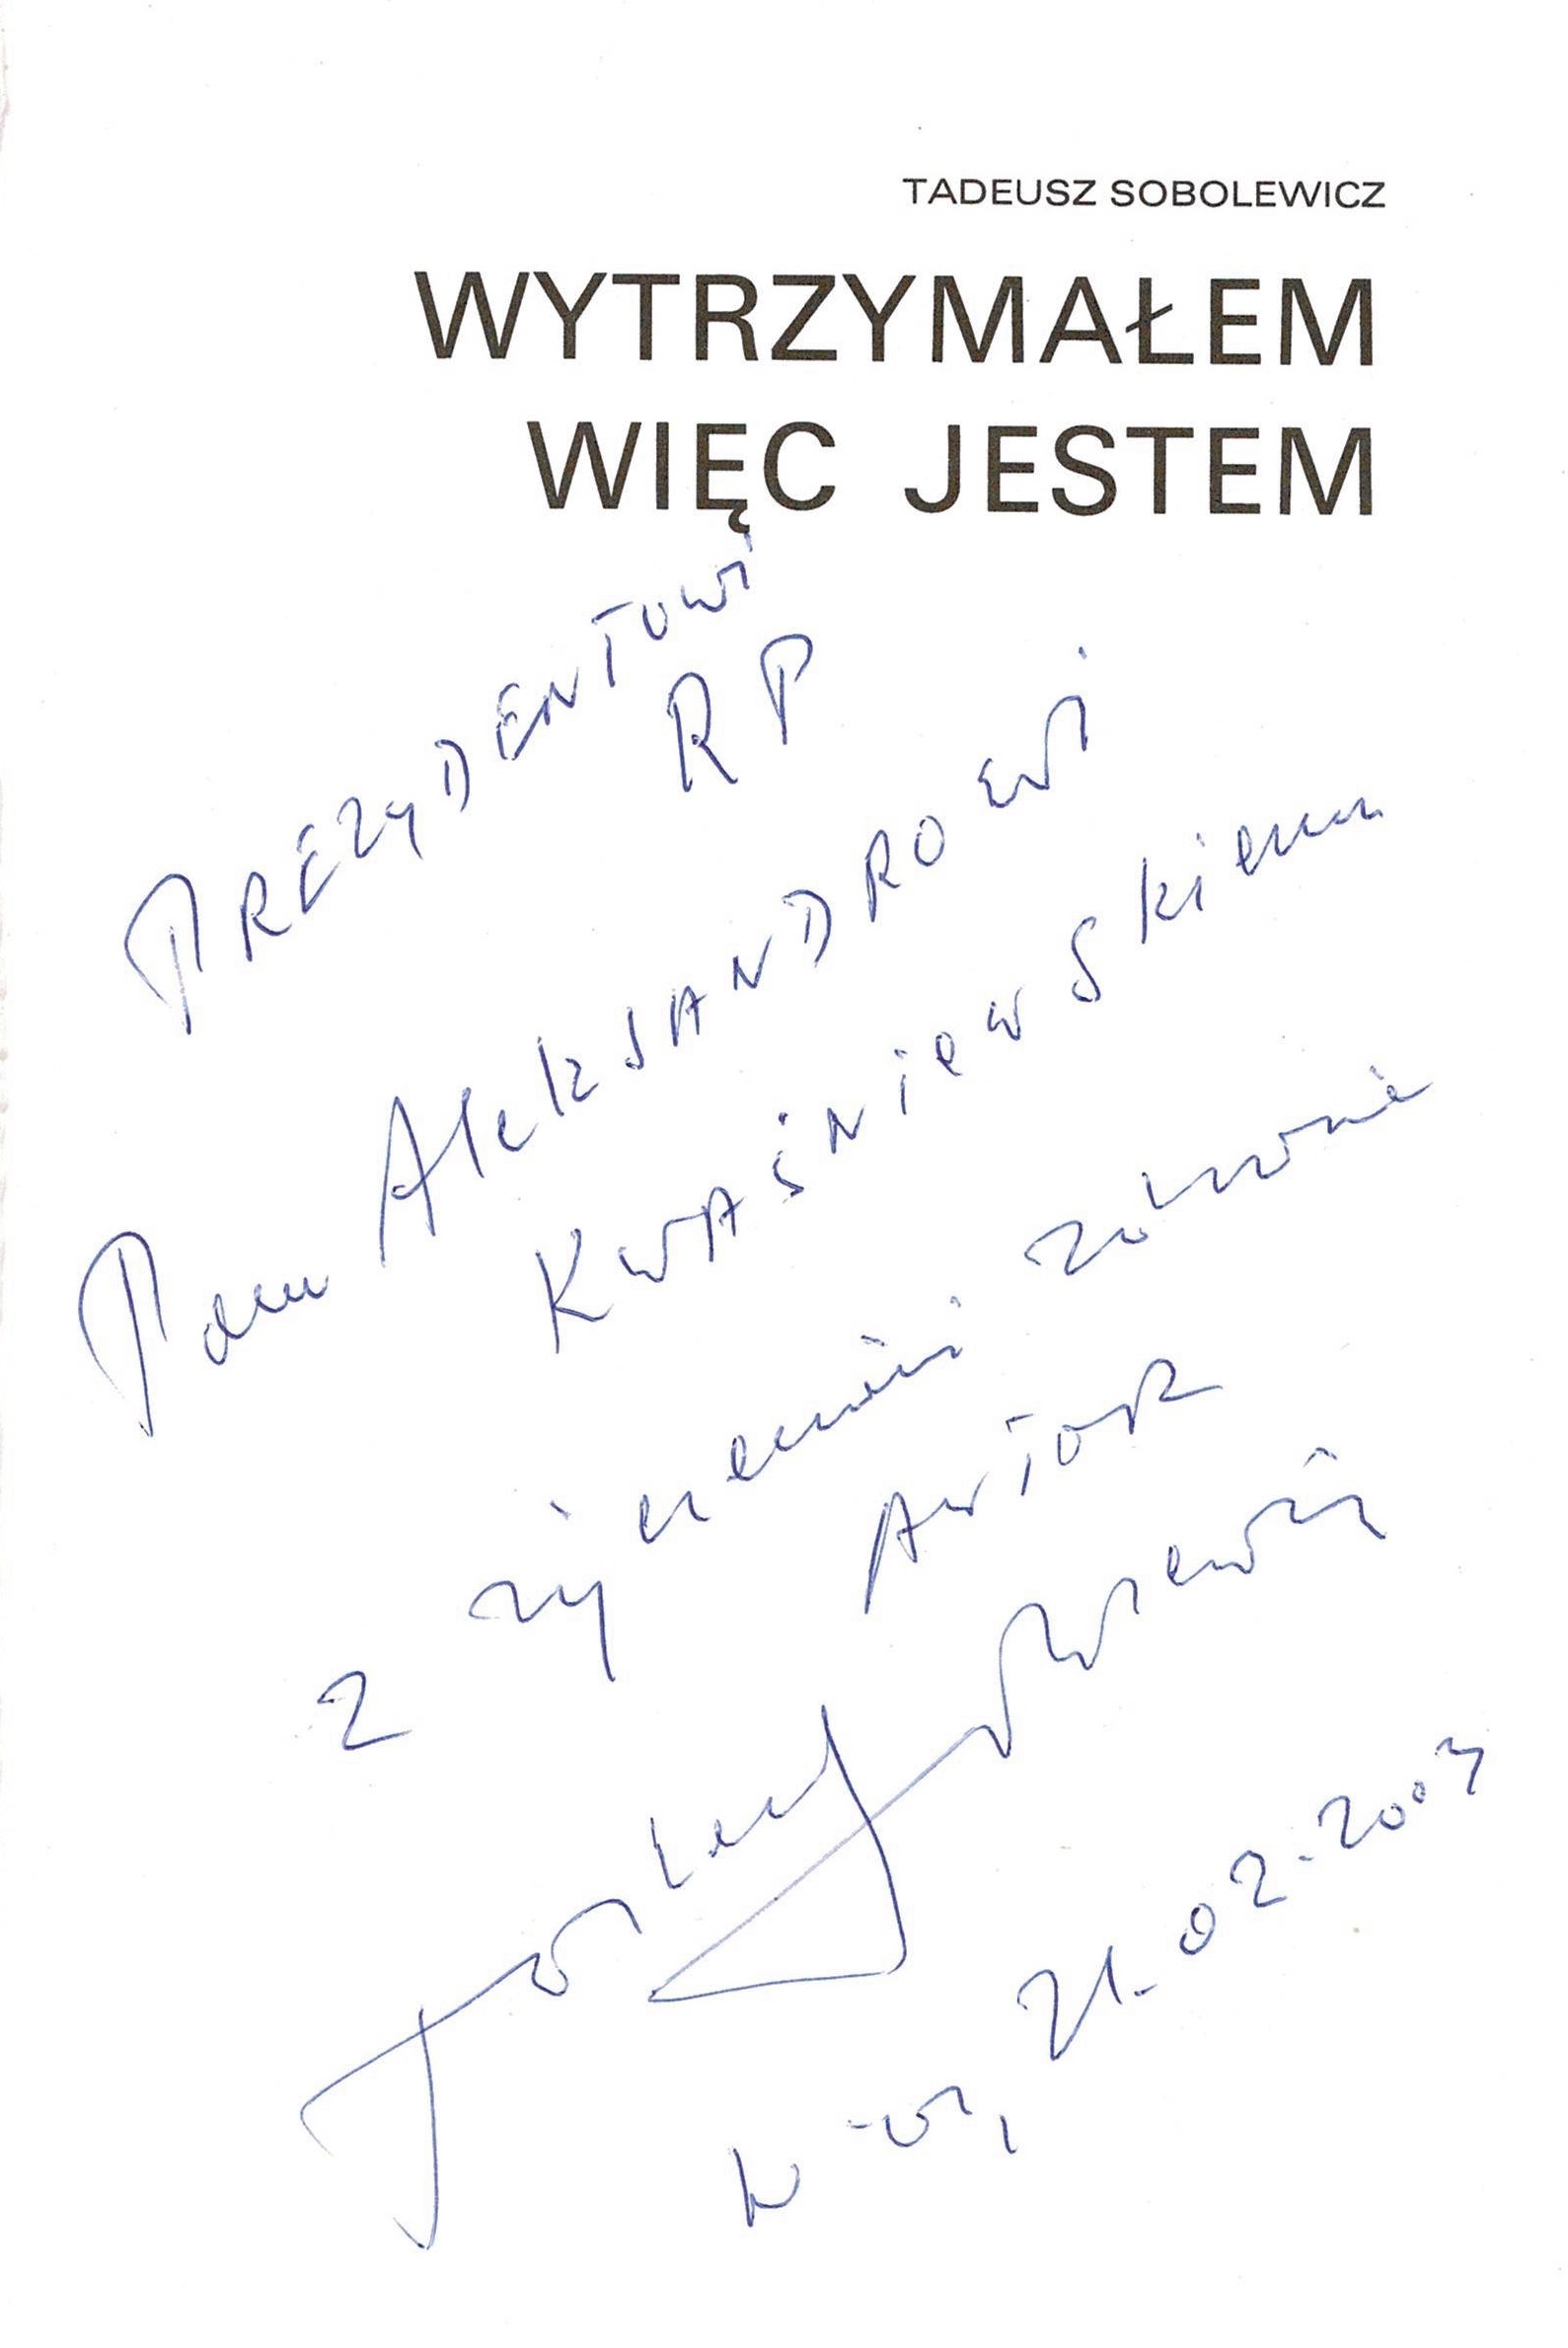 TADEUSZ SOBOLEWICZ
WYTRZYMAŁEM
WIĘC JESTEM
PREZYDENTOWI
RP
Panu AleksANDROWI
KWAŚNiewSkiemu
z życzeniami zdrowia
AUTOR
Tadeusz Sobolewicz
21.02.2004